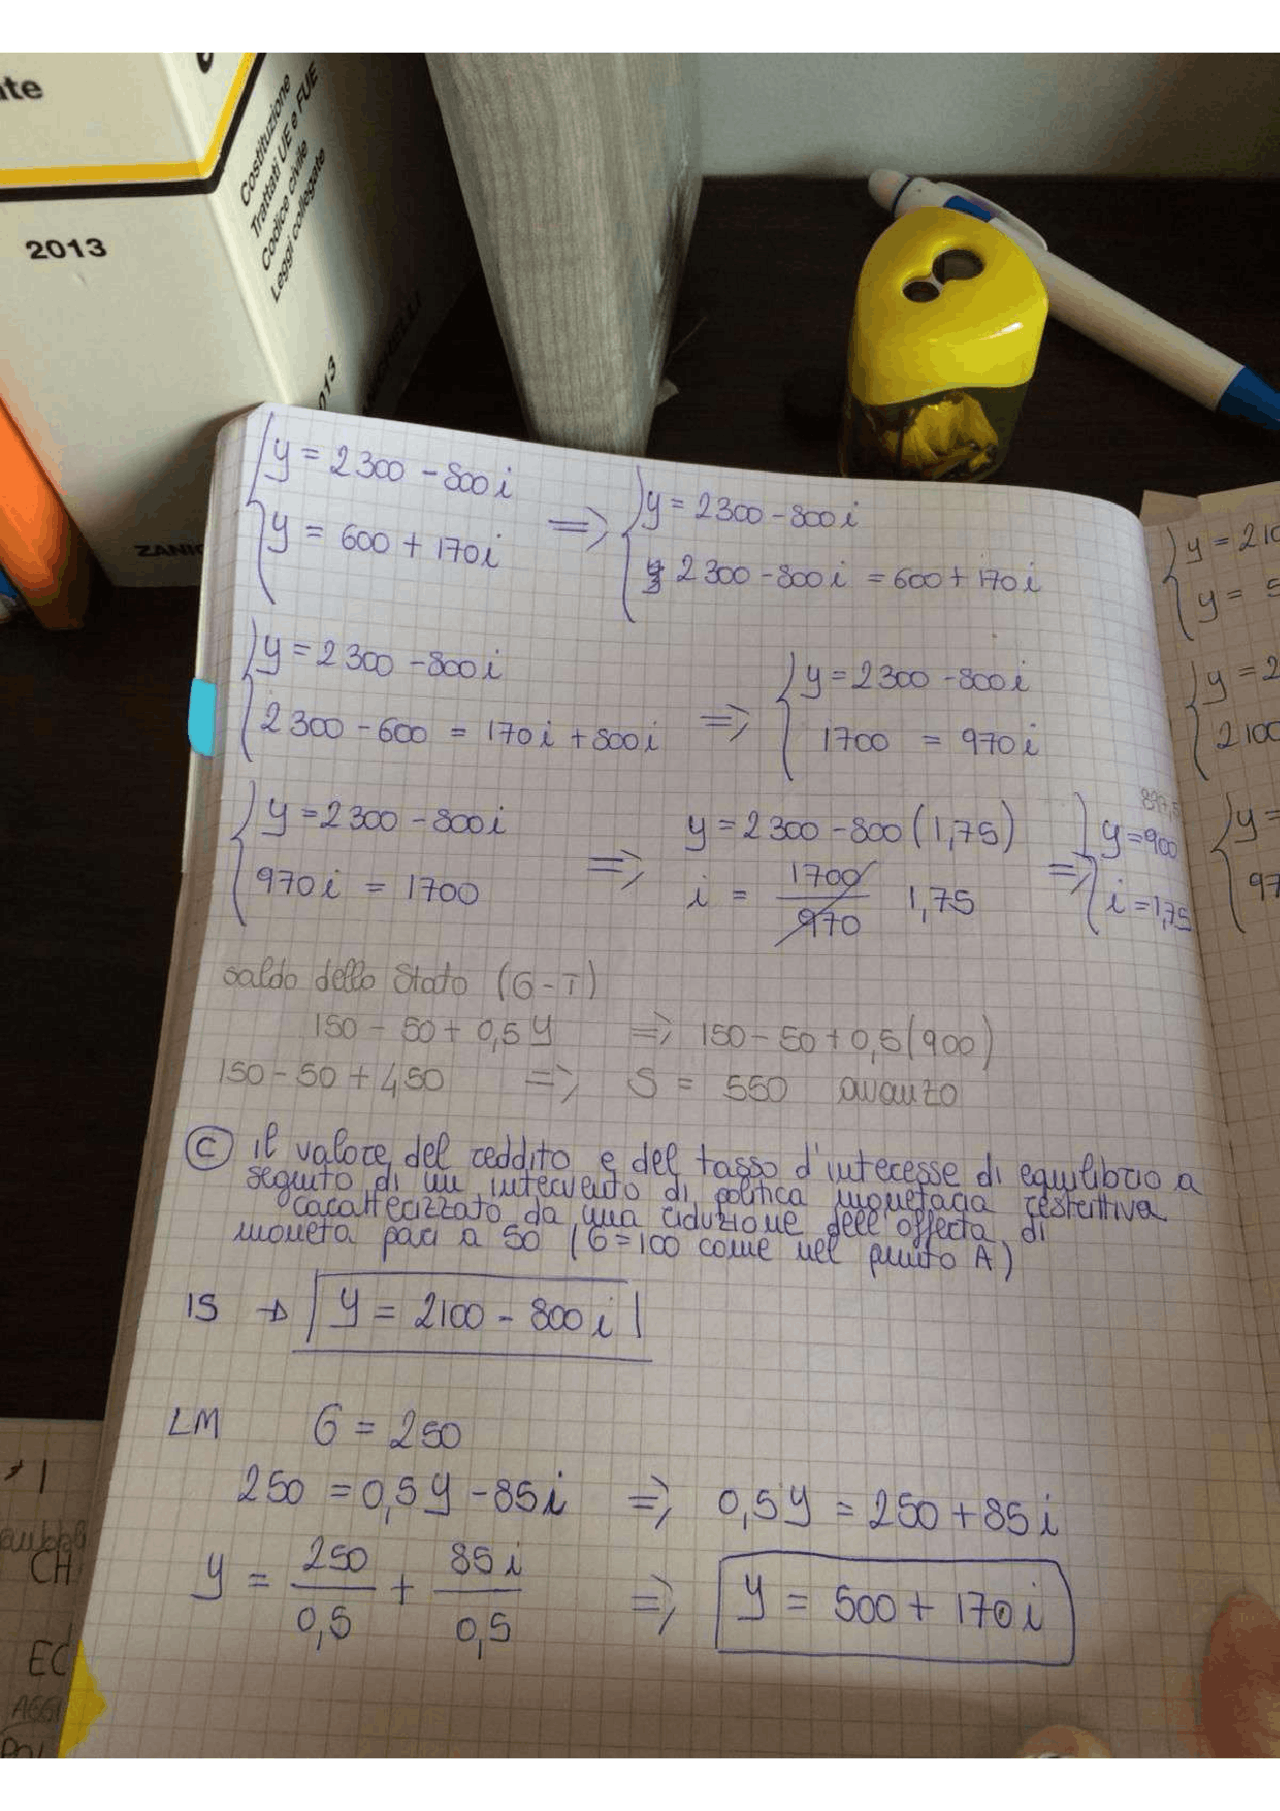 nte
2013
Costituzione
Trattati UE e FUE
Codice civile
Leggi collegate
2013
ZANIC
y = 2300 - 800i
y = 600 + 170i
=> y = 2300 - 800i
2300 - 800i = 600 + 170i
y = 2300 - 800i
2300 - 600 = 170i + 800i
=> y = 2300 - 800i
1700 = 970i
y = 2300 - 800i
970i = 1700
=> y = 2300 - 800 (1,75)
i = 1700/970 1,75
=> y = 900
i = 1,75
saldo dello Stato (G - T)
150 - 50 + 0,5y => 150 - 50 + 0,5(900)
150 - 50 + 450 => S = 550 avanzo
C il valore del reddito e del tasso d'interesse di equilibrio a
seguito di un intervento di politica monetaria restrittiva
caratterizzato da una riduzione dell'offerta di
moneta pari a 50 (G=100 come nel punto A)
IS → y = 2100 - 800i
LM G = 250
250 = 0,5y - 85i => 0,5y = 250 + 85i
y = 250/0,5 + 85i/0,5 => y = 500 + 170i
y = 210
y = 5
y = 2
2100
y =
97
CH
EC